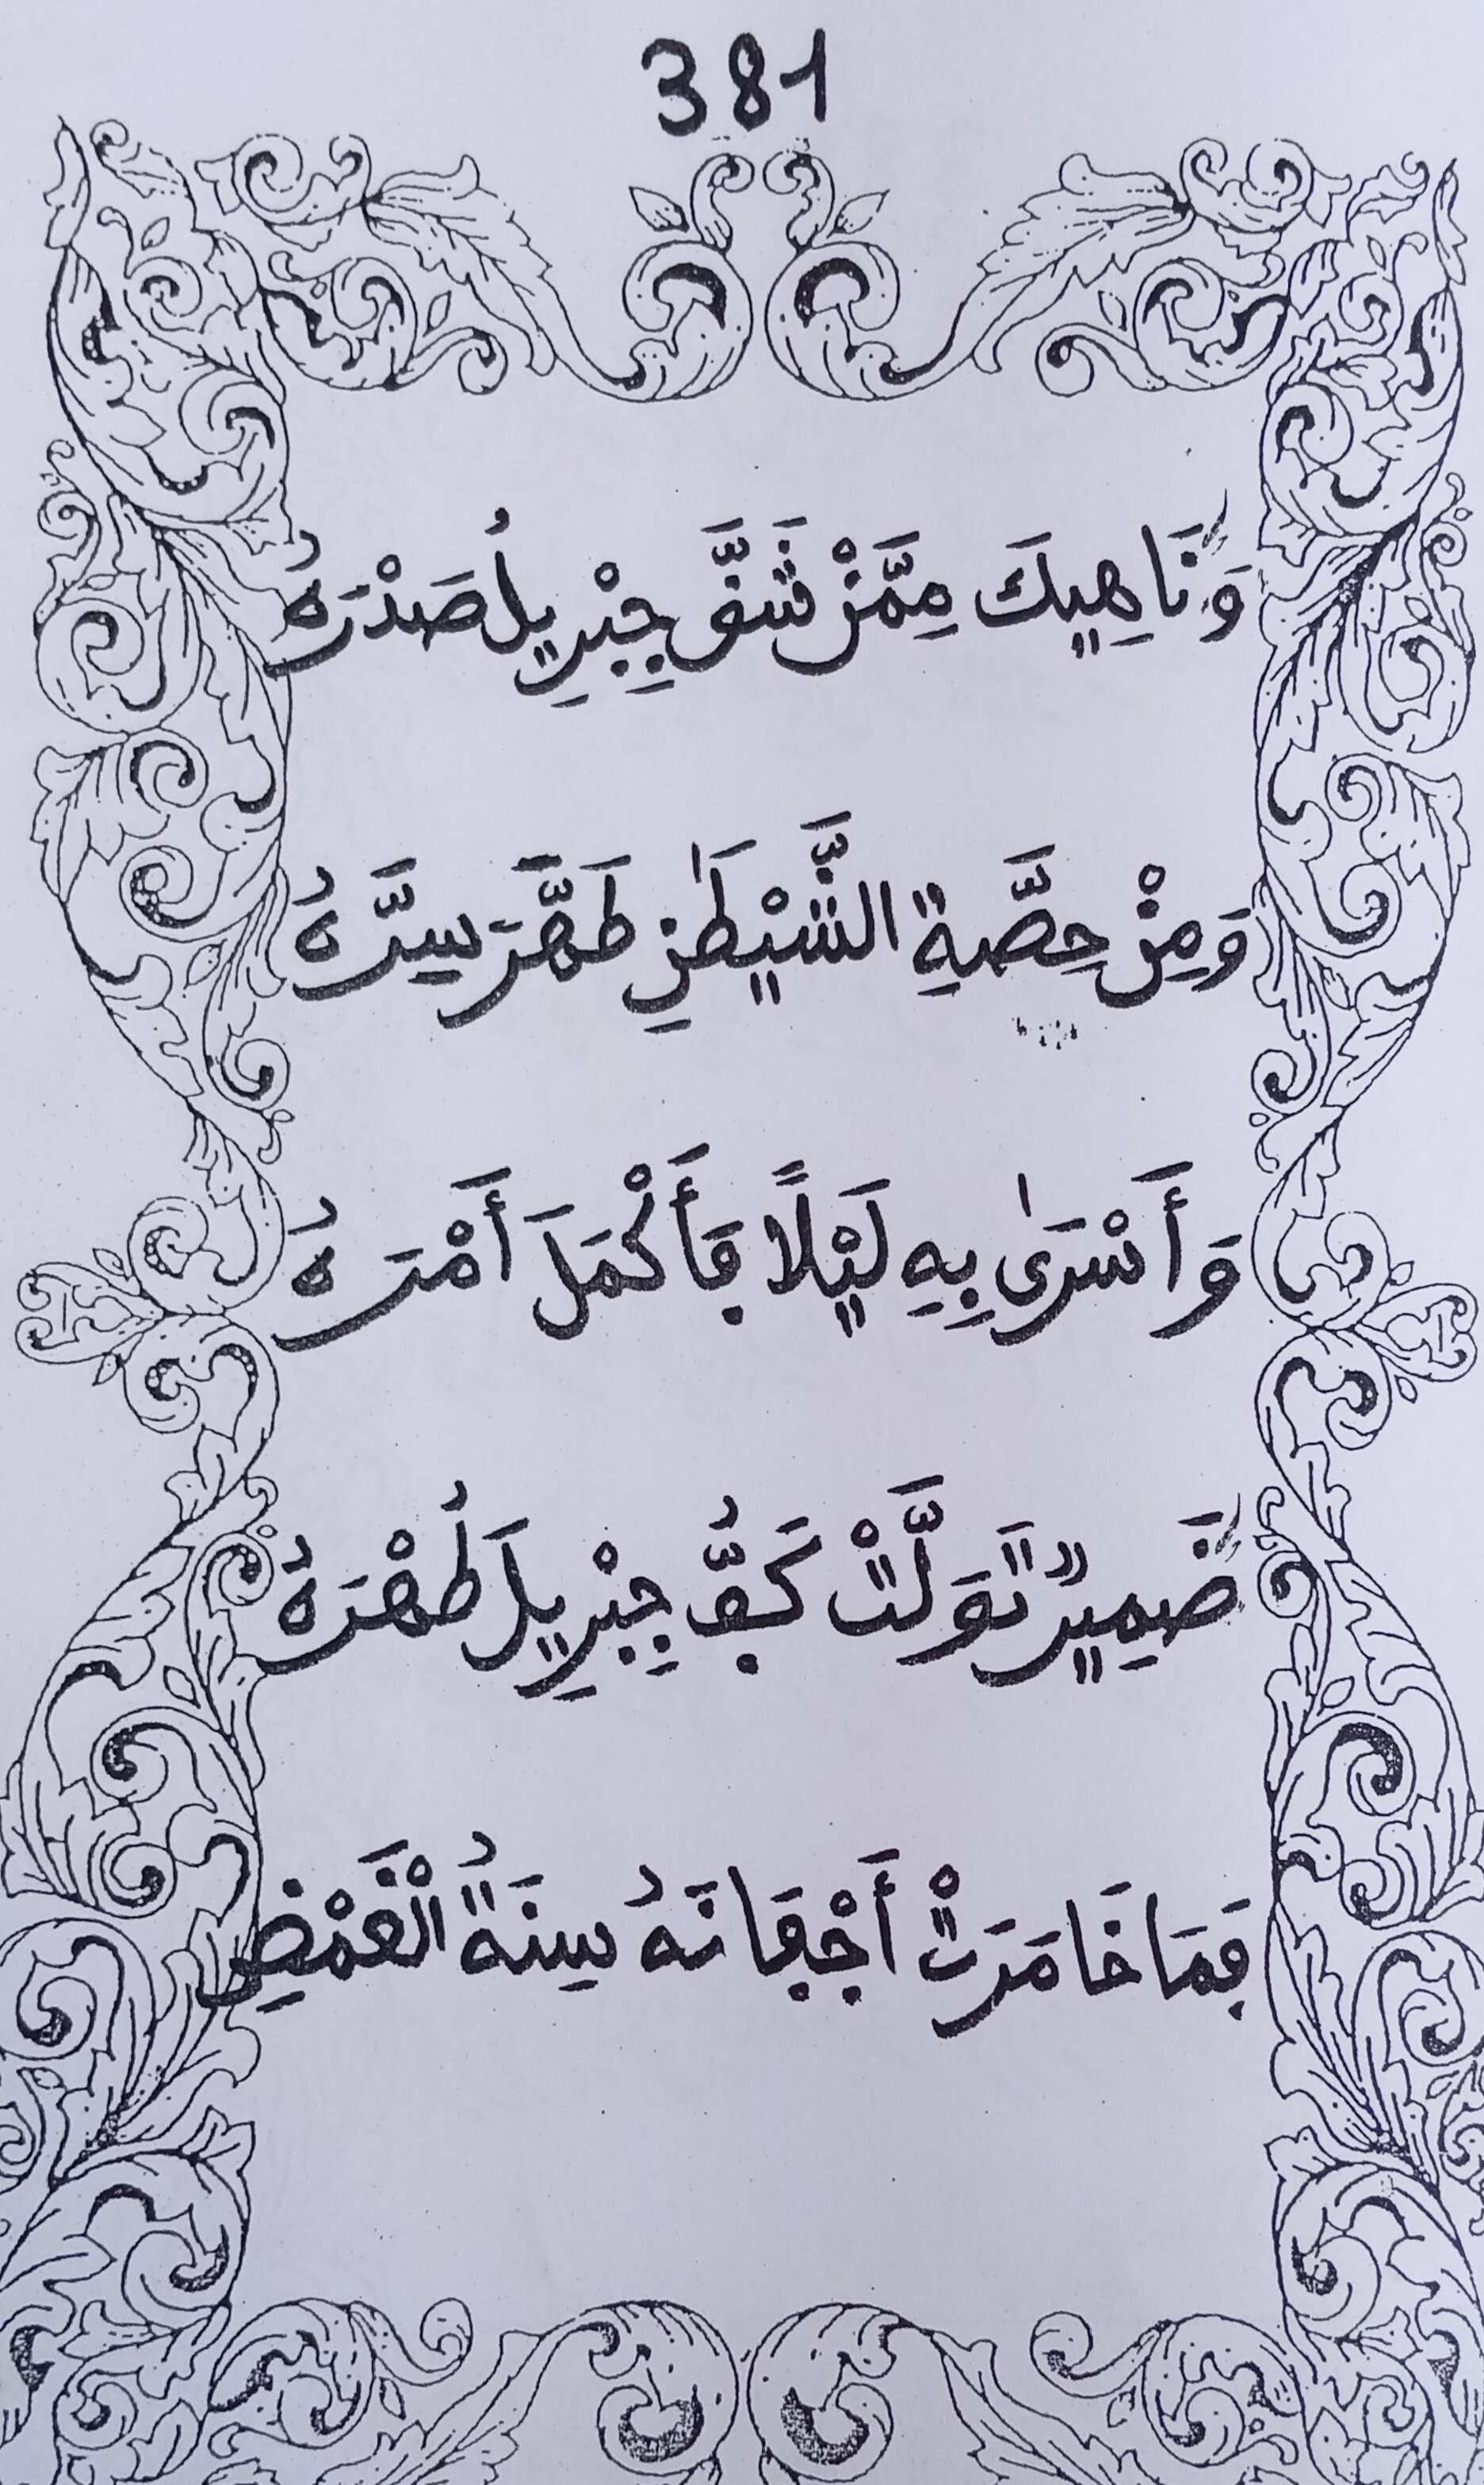 381
وَنَاهِيكَ مِمَّنْ شَقَّ جِبْرِيلُ صَدْرَهُ
وَمِنْ حِصَّةِ الشَّيْطَٰنِ طَهَّرَ سِرَّهُ
وَأَسْرَىٰ بِهِ لَيْلًا فَأَكْمَلَ أَمْرَهُ
ضَمِيرٌ تَوَلَّتْ كَفُّ جِبْرِيلَ طُهْرَهُ
فَمَا خَامَرَتْ أَجْفَانَهُ سِنَةُ الْغَمْضِ